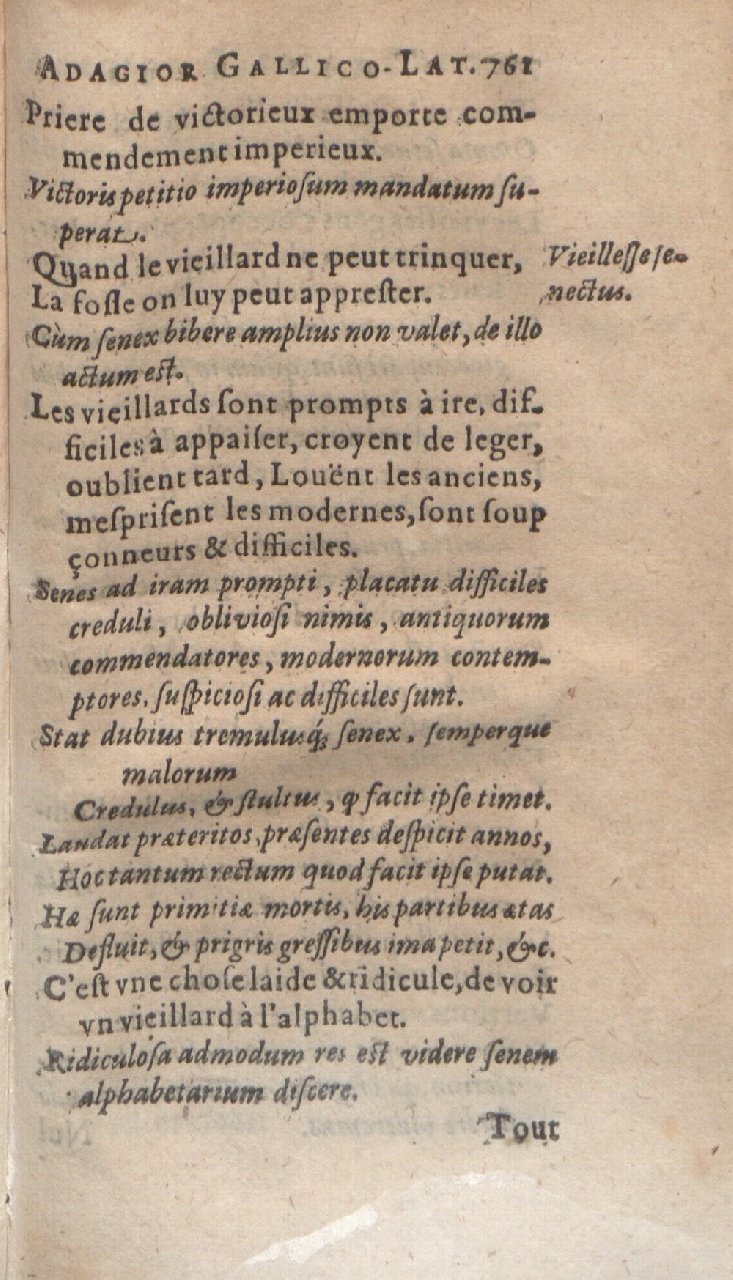 ADAGIOR GALLICO-LAT. 761
Priere de victorieux emporte com-
mendement imperieux.
Victoris petitio imperiosum mandatum su-
perat.
Quand le vieillard ne peut trinquer,
La fosse on luy peut apprester.
Vieillesse se-
nectus.
Cùm senex bibere amplius non valet, de illo
actum est.
Les vieillards sont prompts à ire, dif-
ficiles à appaiser, croyent de leger,
oublient tard, Louënt les anciens,
mesprisent les modernes, sont soup
çonneurs & difficiles.
Senes ad iram prompti, placatu difficiles
creduli, obliviosi nimis, antiquorum
commendatores, modernorum contem-
ptores, suspiciosi ac difficiles sunt.
Stat dubius tremulusq́; senex, semperque
malorum
Credulus, & stultus, ꝙ facit ipse timet.
Laudat præteritos, præsentes despicit annos,
Hoc tantum rectum quod facit ipse putat.
Hæ sunt primitiæ mortis, his partibus ætas
Defluit, & prigris gressibus ima petit, &c.
C'est vne chose laide & ridicule, de voir
vn vieillard à l'alphabet.
Ridiculosa admodum res est videre senem
alphabetarium discere.
Tout